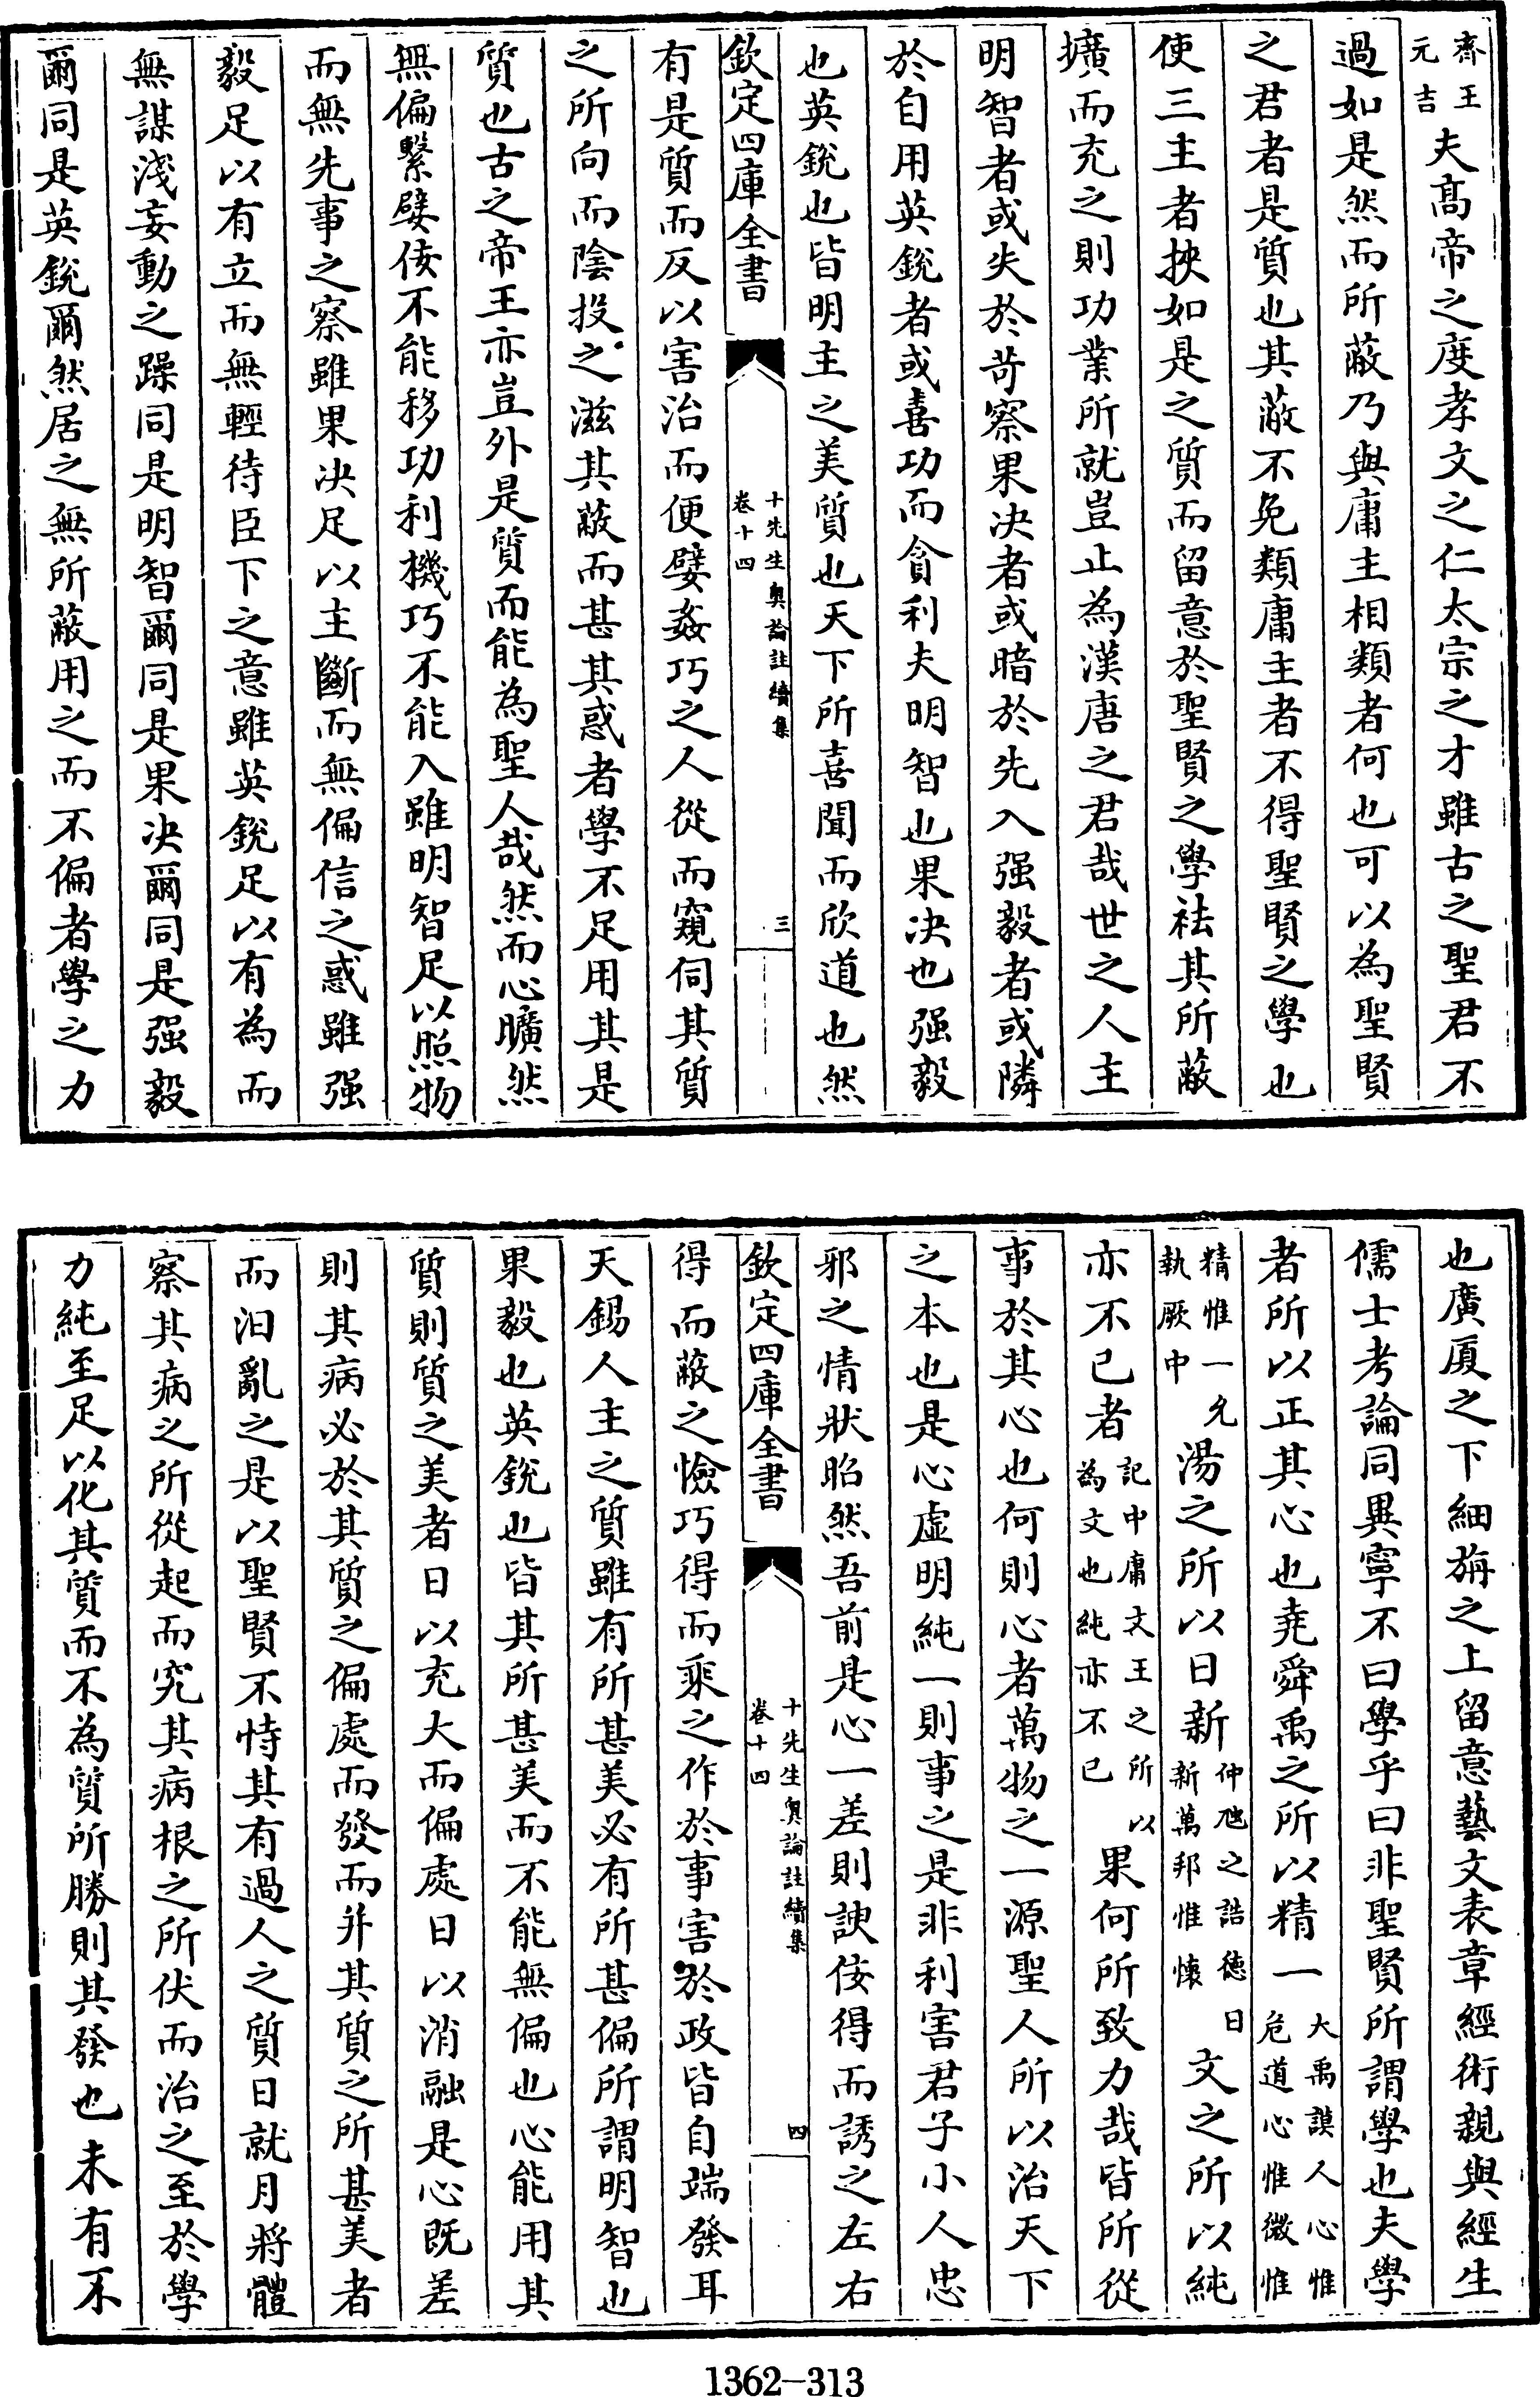 齊王元吉夫髙帝之度孝文之仁太宗之才雖古之聖君不
過如是然而所蔽乃與庸主相類者何也可以為聖賢
之君者是質也其蔽不免類庸主者不得聖賢之學也
使三主者挾如是之質而留意於聖賢之學袪其所蔽
擴而充之則功業所就豈止為漢唐之君哉世之人主
明智者或失於苛察果决者或暗於先入强毅者或隣
於自用英銳者或喜功而貪利夫明智也果决也强毅
也英銳也皆明主之美質也天下所喜聞而欣道也然
欽定四庫全書
十先生奥論註續集
卷十四
三
有是質而反以害治而便嬖姦巧之人從而窺伺其質
之所向而陰投之滋其蔽而甚其惑者學不足用其是
質也古之帝王亦豈外是質而能為聖人哉然而心曠然
無偏繫嬖佞不能移功利機巧不能入雖明智足以照物
而無先事之察雖果决足以主斷而無偏信之惑雖强
毅足以有立而無輕待臣下之意雖英銳足以有為而
無謀淺妄動之躁同是明智爾同是果决爾同是强毅
爾同是英銳爾然居之無所蔽用之而不偏者學之力
也廣厦之下細旃之上留意藝文表章經術親與經生
儒士考論同異寧不曰學乎曰非聖賢所謂學也夫學
者所以正其心也堯舜禹之所以精一大禹謨人心惟危道心惟微惟
精惟一允執厥中湯之所以日新仲虺之誥德日新萬邦惟懷文之所以純
亦不已者記中庸文王之所以為文也純亦不已果何所致力哉皆所從
事於其心也何則心者萬物之一源聖人所以治天下
之本也是心虛明純一則事之是非利害君子小人忠
邪之情狀昭然吾前是心一差則諛佞得而誘之左右
欽定四庫全書
十先生奥論註續集
卷十四
四
得而蔽之憸巧得而乘之作於事害於政皆自端發耳
天錫人主之質雖有所甚美必有所甚偏所謂明智也
果毅也英銳也皆其所甚美而不能無偏也心能用其
質則質之美者日以充大而偏處日以消融是心既差
則其病必於其質之偏處而發而并其質之所甚美者
而汩亂之是以聖賢不恃其有過人之質日就月將體
察其病之所從起而究其病根之所伏而治之至於學
力純至足以化其質而不為質所勝則其發也未有不
1362-313